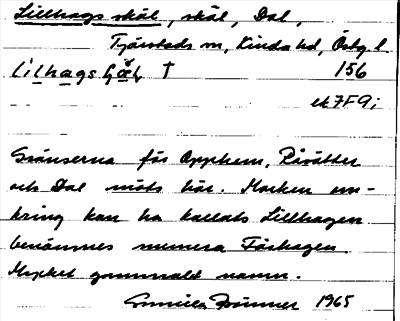 Lillhags skäl, skäl, Dal,
Tjärstads sn, Kinda hd, Östg. l.
156
ek 7F9;
Gränserna för Opphem, Rösätter
och Dal möts här. Marken om-
kring kan ha kallats Lillhagen
benämnes numera Fårhagen.
Mycket gammalt namn.
Gunilla Brönner 1965